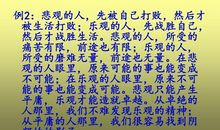 例2：悲观的人，先被自己打败，然后才
被生活打败；乐观的人，先战胜自己，
然后才战胜生活。悲观的人，所受的
痛苦有限，前途也有限；乐观的人，
所受的磨难无量，前途也无量。在悲
观的人眼里，原来可能的事也能变成
不可能；在乐观的人眼里，原来不可
能的事也能变成可能。悲观只能产生
平庸，乐观才能造就卓绝。从卓绝的
人那里，我们不难发现乐观的精神；
从平庸的人那里，我们很容易找到阴